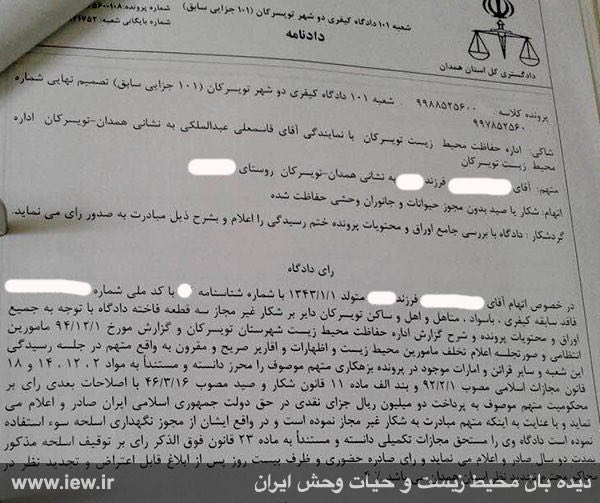 شعبه ۱۰۱ دادگاه کیفری دو شهر تویسرکان (۱۰۱ جزایی سابق)
دادنامه
شماره بایگانی شعبه:
دادگستری کل استان همدان
پرونده کلاسه ۹۹۸۸۵۲۵۶۰۰ شعبه ۱۰۱ دادگاه کیفری دو شهر تویسرکان (۱۰۱ جزایی سابق) تصمیم نهایی شماره
۹۹۷۸۵۲۵۶۰
شاکی: اداره حفاظت محیط زیست تویسرکان با نمایندگی آقای قاسمعلی عبدالملکی به نشانی همدان-تویسرکان اداره
محیط زیست تویسرکان
متهم: آقای فرزند به نشانی همدان-تویسرکان روستای
اتهام: شکار یا صید بدون مجوز حیوانات و جانوران وحشی حفاظت شده
گردشکار: دادگاه با بررسی جامع اوراق و محتویات پرونده ختم رسیدگی را اعلام و بشرح ذیل مبادرت به صدور رای می نماید.
رای دادگاه
در خصوص اتهام آقای فرزند متولد ۱۳۴۳/۱/۱ با شماره شناسنامه با کد ملی شماره
فاقد سابقه کیفری ، باسواد ، متاهل و اهل و ساکن تویسرکان دایر بر شکار غیر مجاز سه قطعه فاخته دادگاه با توجه به جمیع
اوراق و محتویات پرونده و شرح گزارش اداره حفاظت محیط زیست شهرستان تویسرکان و گزارش مورخ ۹۴/۱۲/۱ مامورین
انتظامی و صورتجلسه اعلام تخلف مامورین محیط زیست و اظهارات و اقاریر صریح و مقرون به واقع متهم در جلسه رسیدگی
این شعبه و سایر قرائن و امارات موجود در پرونده بزهکاری متهم موصوف را محرز دانسته و مستنداً به مواد ۲ ، ۱۲ ، ۱۴ و ۱۸
قانون مجازات اسلامی مصوب ۹۲/۲/۱ و بند الف ماده ۱۱ قانون شکار و صید مصوب ۴۶/۳/۱۶ با اصلاحات بعدی رای بر
محکومیت متهم موصوف به پرداخت دو میلیون ریال جزای نقدی در حق دولت جمهوری اسلامی ایران صادر و اعلام می
نماید و با عنایت به اینکه متهم مبادرت به شکار غیر مجاز نموده است و در واقع ایشان از مجوز نگهداری اسلحه سوء استفاده
نموده است دادگاه وی را مستحق مجازات تکمیلی دانسته و مستنداً به ماده ۲۳ قانون فوق الذکر رای بر توقیف اسلحه مذکور
بمدت دو سال صادر و اعلام می نماید و رای صادره حضوری و ظرف بیست روز پس از ابلاغ قابل اعتراض و تجدید نظر در
محاکم محترم تجدید نظر استان همدان می باشد.
www.iew.ir
دیده بان محیط زیست و حیات وحش ایران